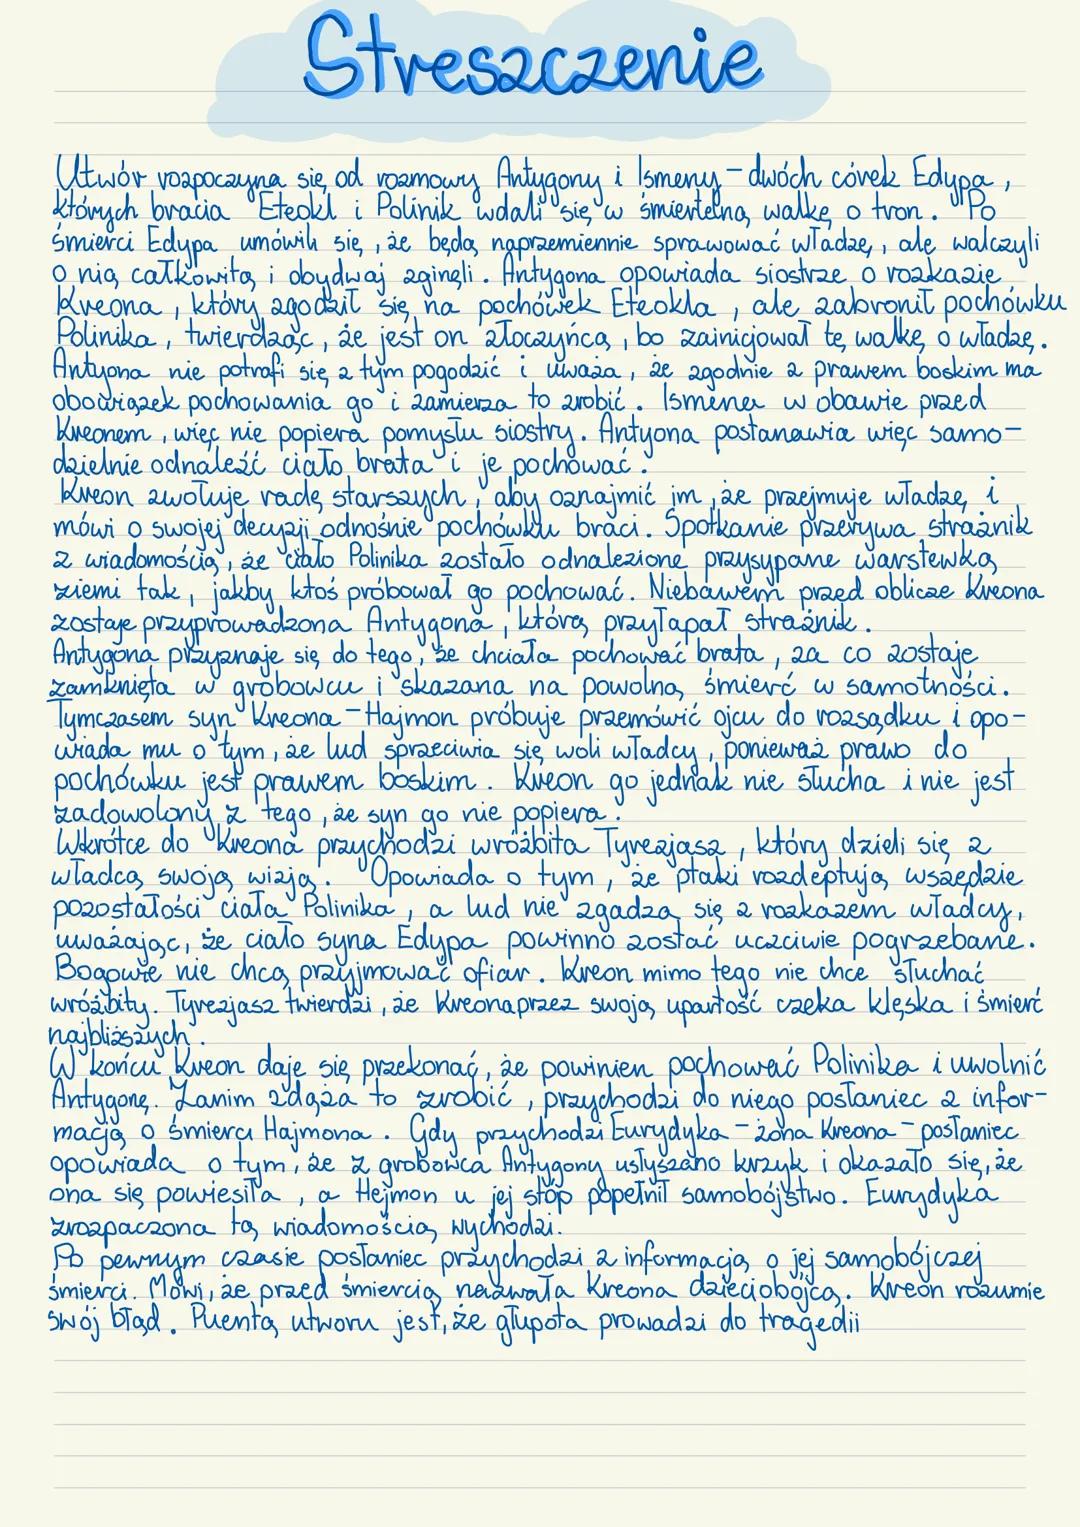 Streszczenie
Utwór rozpoczyna się od rozmowy Antygony i Ismeny - dwóch córek Edypa,
których bracia Eteokl i Polinik wdali się w śmiertelną walkę o tron. Po
śmierci Edypa umówili się, że będą naprzemiennie sprawować władzę, ale walczyli
o nią całkowitą i obydwaj zginęli. Antygona opowiada siostrze o rozkazie
Kreona, który zgodził się na pochówek Eteokla, ale zabronił pochówku
Polinika, twierdząc, że jest on złoczyńcą, bo zainicjował tę walkę o władzę.
Antyona nie potrafi się z tym pogodzić i uważa, że zgodnie z prawem boskim ma
obowiązek pochowania go i zamierza to zrobić. Ismena w obawie przed
Kreonem, więc nie popiera pomysłu siostry. Antyona postanawia więc samo-
dzielnie odnaleźć ciało brata i je pochować.
Kreon zwołuje radę starszych, aby oznajmić im, że przejmuje władzę i
mówi o swojej decyzji odnośnie pochówku braci. Spotkanie przerywa strażnik
z wiadomością, że ciało Polinika zostało odnalezione przysypane warstewką
ziemi tak, jakby ktoś próbował go pochować. Niebawem przed oblicze Kreona
zostaje przyprowadzona Antygona, którą przyłapał strażnik.
Antygona przyznaje się do tego, że chciała pochować brata, za co zostaje
zamknięta w grobowcu i skazana na powolną śmierć w samotności.
Tymczasem syn Kreona - Hajmon próbuje przemówić ojcu do rozsądku i opo-
wiada mu o tym, że lud sprzeciwia się woli władcy, ponieważ prawo do
pochówku jest prawem boskim. Kreon go jednak nie słucha i nie jest
zadowolony z tego, że syn go nie popiera.
Wkrótce do Kreona przychodzi wróżbita Tyrezjasz, który dzieli się z
władcą swoją wizją. Opowiada o tym, że ptaki rozdeptują wszędzie
pozostałości ciała Polinika, a lud nie zgadza się z rozkazem władcy,
uważając, że ciało syna Edypa powinno zostać uczciwie pogrzebane.
Bogowie nie chcą przyjmować ofiar. Kreon mimo tego nie chce słuchać
wróżbity. Tyrezjasz twierdzi, że Kreona przez swoją upartość czeka klęska i śmierć
najbliższych.
W końcu Kreon daje się przekonać, że powinien pochować Polinika i uwolnić
Antygonę. Zanim zdąża to zrobić, przychodzi do niego posłaniec z infor-
macją o śmierci Hajmona. Gdy przychodzi Eurydyka - żona Kreona - posłaniec
opowiada o tym, że z grobowca Antygony usłyszano krzyk i okazało się, że
ona się powiesiła, a Hejmon u jej stóp popełnił samobójstwo. Eurydyka
zrozpaczona tą wiadomością wychodzi.
Po pewnym czasie posłaniec przychodzi z informacją o jej samobójczej
śmierci. Mówi, że przed śmiercią nazwała Kreona dzieciobójcą. Kreon rozumie
swój błąd. Puentą utworu jest, że głupota prowadzi do tragedii